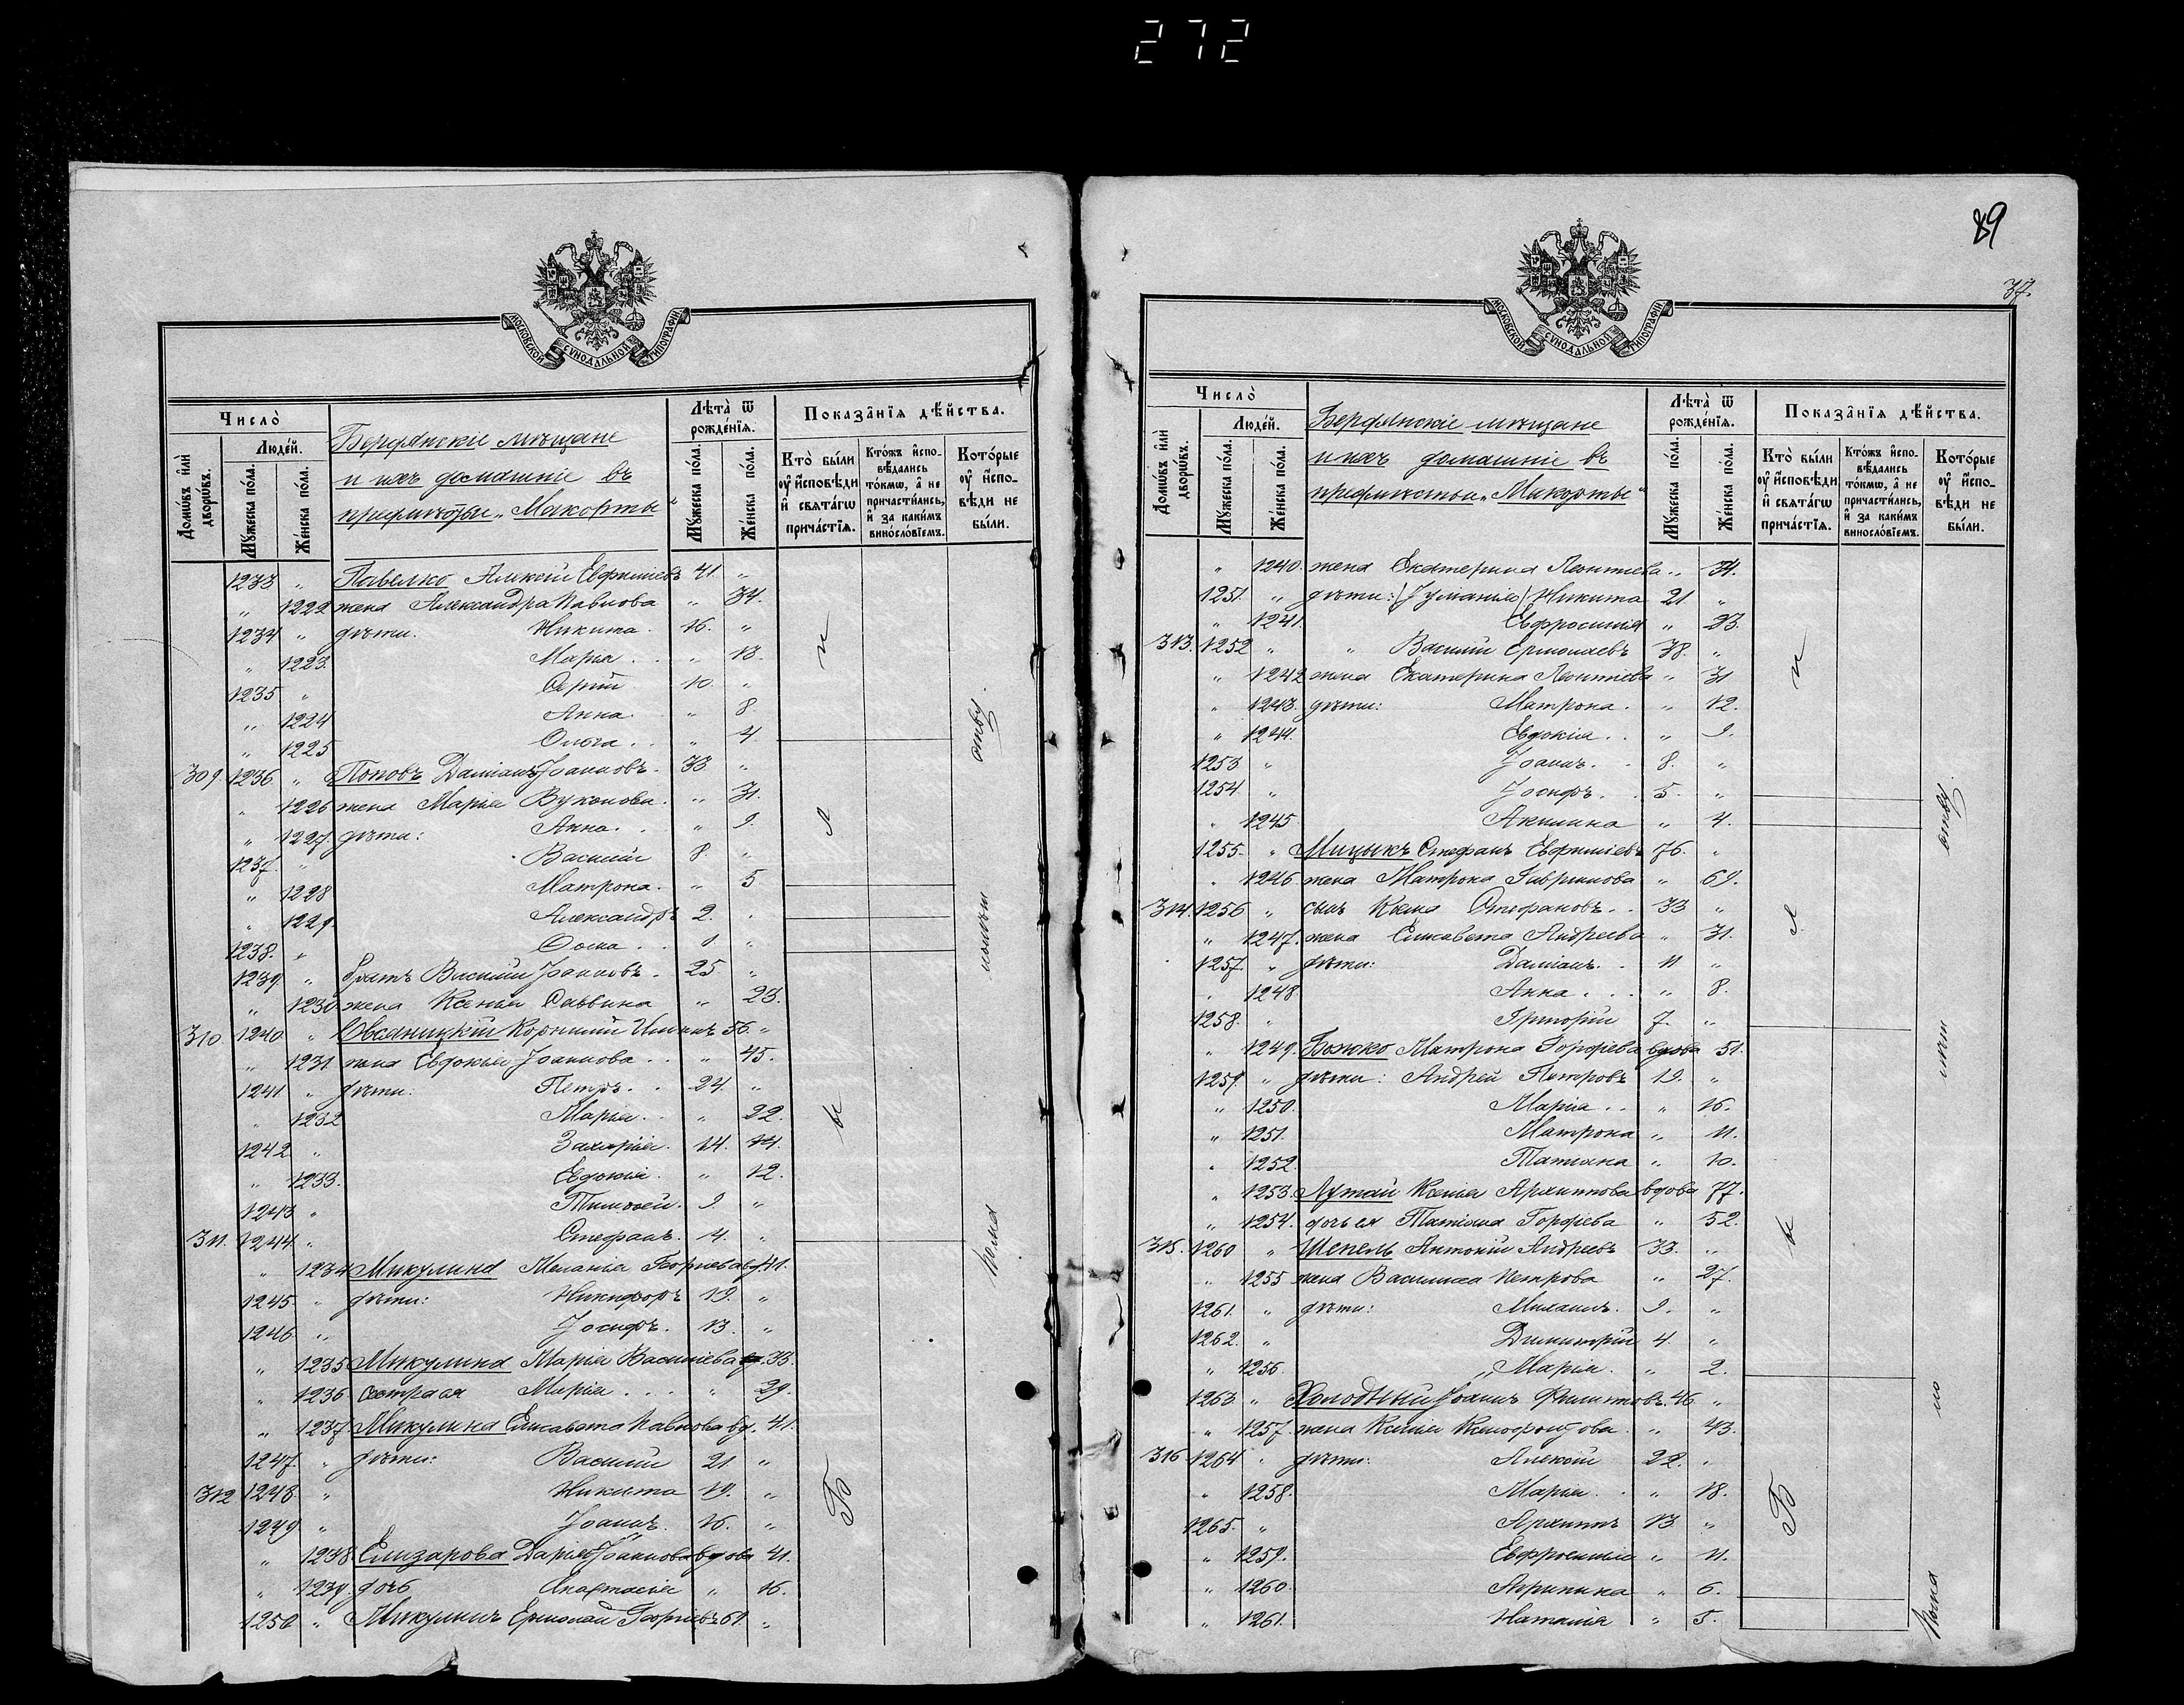 272
МОСКОВСКОЙ СѴНОДАЛЬНОЙ ТИПОГРАФІИ
Число̀
Домѡ́въ и҆лѝ дворѡ́въ.
Люде́й.
Мꙋ́жеска по́ла.
Же́нска по́ла.
Бердянскіе мѣщане
и ихъ домашніе въ
„Макорты“
Лѣта̀ ѿ рожде́нїѧ.
Мꙋ́жеска по́ла.
Же́нска по́ла.
Показа̑нїѧ дѣ́йства.
Кто̀ бы́ли ᲂу҆ и҆сповѣ́ди и҆ свѧта́гѡ прича́стїѧ.
Кто́жъ и҆спо-вѣ́дались то́кмѡ, а҆ не причасти́лись, и҆ за каки́мъ винᲂсло́вїемъ.
Кото́рые ᲂу҆ и҆спо-вѣ́ди не бы́ли.
1233 „ Павелко Алексѣй Евфиміевъ 41. „
„ 1222 жена Александра Павлова „ 34.
1234 „ дѣти: Никита. 16. „
„ 1223. Марія . . „ 13.
1235 „ Сергій 10. „
„ 1224 Анна. „ 8.
„ 1225 Ольга . . „ 4.
309. 1236. „ Поповъ Даміанъ Іоанновъ. 33 „
„ 1226 жена Марія Вуколова. „ 31.
„ 1227. дѣти: Анна. . „ 9.
1237. „ Василій 8. „
„ 1228 Матрона. „ 5
„ 1229. Александръ 2. „
1238. „ . . 1. „
1239. „ братъ Василій Іоанновъ. 25 „
„ 1230 жена Ксенія Саввина „ 23.
310. 1240. „ Овсяницкій Корнилій 56. „
„ 1231. жена Евдокія Іоаннова . . „ 45.
1241. „ дѣти: Петръ. . 24. „
„ 1232 Марія. . „ 22.
1242 „ Захарія. 14. 14.
„ 1233. Евдокія. „ 12.
1243 „ Тимоѳей. 9. „
311. 1244. „ Стефанъ. 4. „
„ 1234 Микулина Меланія Георгіева вд. 41.
1245. „ дѣти: Никифоръ 19. „
1246. „ Іосифъ. 13. „
„ 1235 Микулина Марія Васильева вд. 33.
„ 1236 сестра ея Марія . . . „ 29.
„ 1237 Микулина Елисавета Павлова вд. 41.
1247. „ дѣти: Василій 21. „
312 1248. „ Никита 19. „
1249 „ Іоаннъ. 16. „
„ 1238 Елизарова Дарія Іоаннова вдова 41.
„ 1239 дочь Анастасія „ 16.
1250 „ Микулинъ Ермолай Георгіевъ 61. „
89
37.
МОСКОВСКОЙ СѴНОДАЛЬНОЙ ТИПОГРАФІИ
Число̀
Домѡ́въ и҆лѝ дворѡ́въ.
Люде́й.
Мꙋ́жеска по́ла.
Же́нска по́ла.
Бердянскіе мѣщане
и ихъ домашніе въ
„Микорты“
Лѣта̀ ѿ рожде́нїѧ.
Мꙋ́жеска по́ла.
Же́нска по́ла.
Показа̑нїѧ дѣ́йства.
Кто̀ бы́ли ᲂу҆ и҆сповѣ́ди и҆ свѧта́гѡ прича́стїѧ.
Кто́жъ и҆спо-вѣ́дались то́кмѡ, а҆ не причасти́лись, и҆ за каки́мъ винᲂсло́вїемъ.
Кото́рые ᲂу҆ и҆спо-вѣ́ди не бы́ли.
„ 1240. жена Екатерина Леонтіева . „ 34.
1251. „ дѣти: Никита 21. „
„ 1241. Евфросинія „ 23.
313. 1252 „ „ Василій Ермолаевъ 38. „
„ 1242 жена Екатерина Леонтіева „ 31
„ 1243. дѣти: Матрона. „ 12.
„ 1244. Евдокія . . „ 9.
1253 „ Іоаннъ. . 8. „
1254 „ Іосифъ. . 5. „
„ 1245 Акилина „ 4.
1255. „ Мицыкъ Стефанъ Евфиміевъ 76. „
„ 1246 жена Матрона Гавриилова „ 69.
314. 1256 „ сынъ Козма Стефановъ. . 33 „
„ 1247. жена Елисавета Андреева „ 31.
1257. „ дѣти: Даміанъ. . 11 „
„ 1248 Анна . . . „ 8.
1258. „ Григорій 7. „
„ 1249. Божко Матрона Гордіева вдова 51.
1259. „ дѣти: Андрей Петровъ 19. „
„ 1250. Марія . . „ 16.
„ 1251. Матрона „ 11.
„ 1252. Татіана „ 10.
„ 1253. Лутай Ксенія Архиппова вдова 77.
„ 1254. дочь ея Татіана Гордіева „ 52.
315. 1260 „ Шепель Антоній Андреевъ 33. „
„ 1255 жена Василисса Петрова „ 27.
1261. „ дѣти: Михаилъ. 9. „
1262. „ Димитрій 4. „
„ 1256. Марія. „ 2.
1263. „ Холодный Іоаннъ Филипповъ. 46 „
„ 1257. жена Ксенія Ксенофонтова. „ 43.
316 1264 „ дѣти: Алексій 22. „
„ 1258. Марія. . „ 18.
1265. „ Архиппъ 13 „
„ 1259. Евфросинія „ 11.
„ 1260. Агрипина „ 6.
„ 1261. Наталія „ 5.